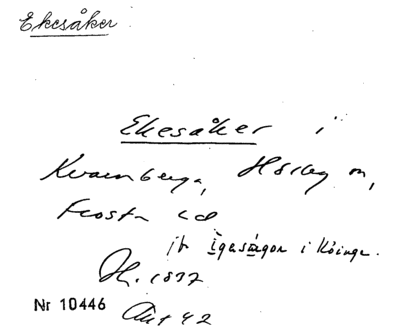 Ekesåker
Ekesåker i
Kvarnberga, Hörby sn,
Frosta hd
jb Igasågon i Köinge.
H. 1877
Nr 10446
Akt 42